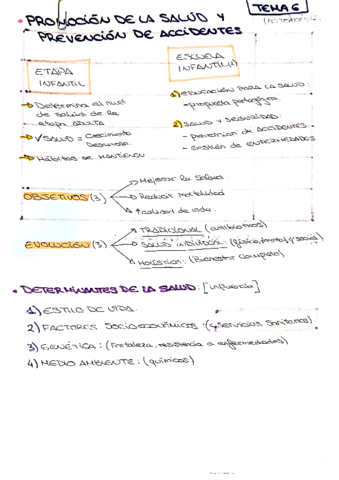 TEMA 6
• PROMOCIÓN DE LA SALUD Y
PREVENCIÓN DE ACCIDENTES
ETAPA
INFANTIL
→ Determina el nivel
de salud de la
etapa ADULTA
→ ✓SALUD = Crecimiento
Desarrollo
→ Hábitos SE MANTIENEN
ESCUELA
INFANTIL
1) EDUCACIÓN PARA LA SALUD
- propuesta pedagógica
2) SALUD Y SEGURIDAD
- prevención de ACCIDENTES
- de ENFERMEDADES
OBJETIVOS (3)
→ Mejorar la Salud
→ Reducir mortalidad
→ ↑calidad de vida
EVOLUCIÓN (3)
→ TRADICIONAL (antibióticos)
→ SALUD INDIVIDUAL (física, mental y social)
→ HOLÍSTICA: (Bienestar Completo)
• DETERMINANTES DE LA SALUD: [influencia]
1) ESTILO DE VIDA.
2) FACTORES SOCIOECONÓMICOS: (Servicios Sanitarios)
3) GENÉTICA: (Fortaleza, resistencia a enfermedades)
4) MEDIO AMBIENTE: (químicos)